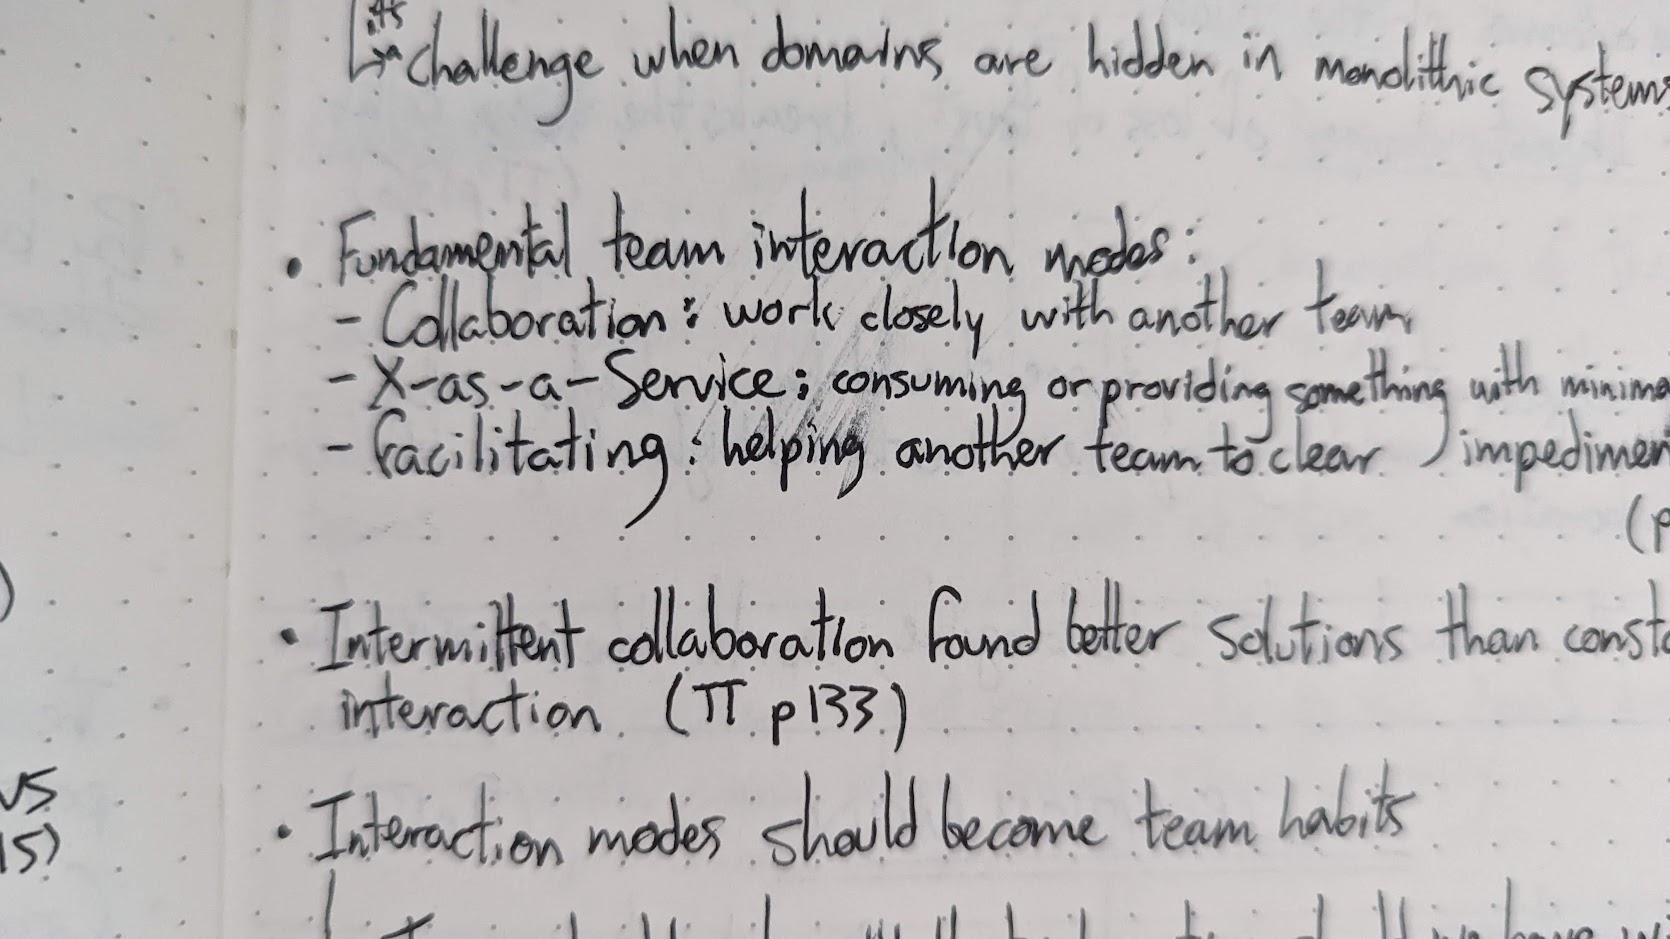 ↳ it's challenge when domains are hidden in monolithic systems
• Fundamental team interaction modes:
- Collaboration: work closely with another team
- X-as-a-Service: consuming or providing something with minima
- Facilitating: helping another team to clear impedimen
(p
)
• Intermittent collaboration found better solutions than consta
interaction (TT p133)
vs
15)
• Interaction modes should become team habits